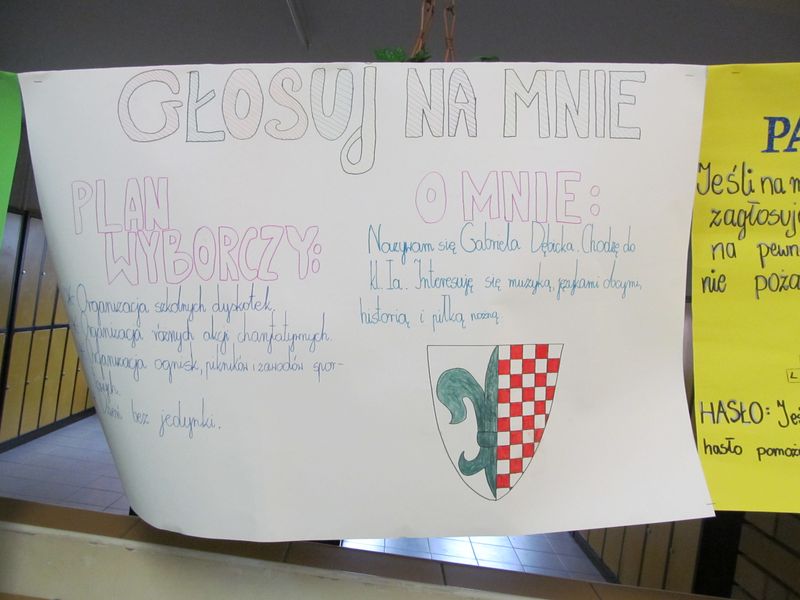 GŁOSUJ NA MNIE
PLAN
WYBORCZY:
* Organizacja szkolnych dyskotek.
* Organizacja różnych akcji charytatywnych.
Organizacja ognisk, pikników i zawodów spor-
towych.
bez jedynki.
O MNIE:
Nazywam się Gabriela Dębicka. Chodzę do
kl. Ia. Interesuję się muzyką, językami obcymi,
historią i piłką nożną.
PA
Jeśli na m
zagłosuj
na pewn
nie poża
L
HASŁO: Jeś
hasło pomoż